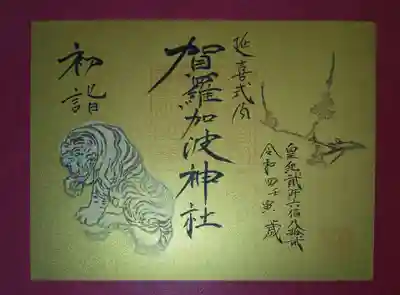 延喜式内
賀羅加波神社
初詣
皇紀貮阡六佰八拾貮
令和四壬寅歳